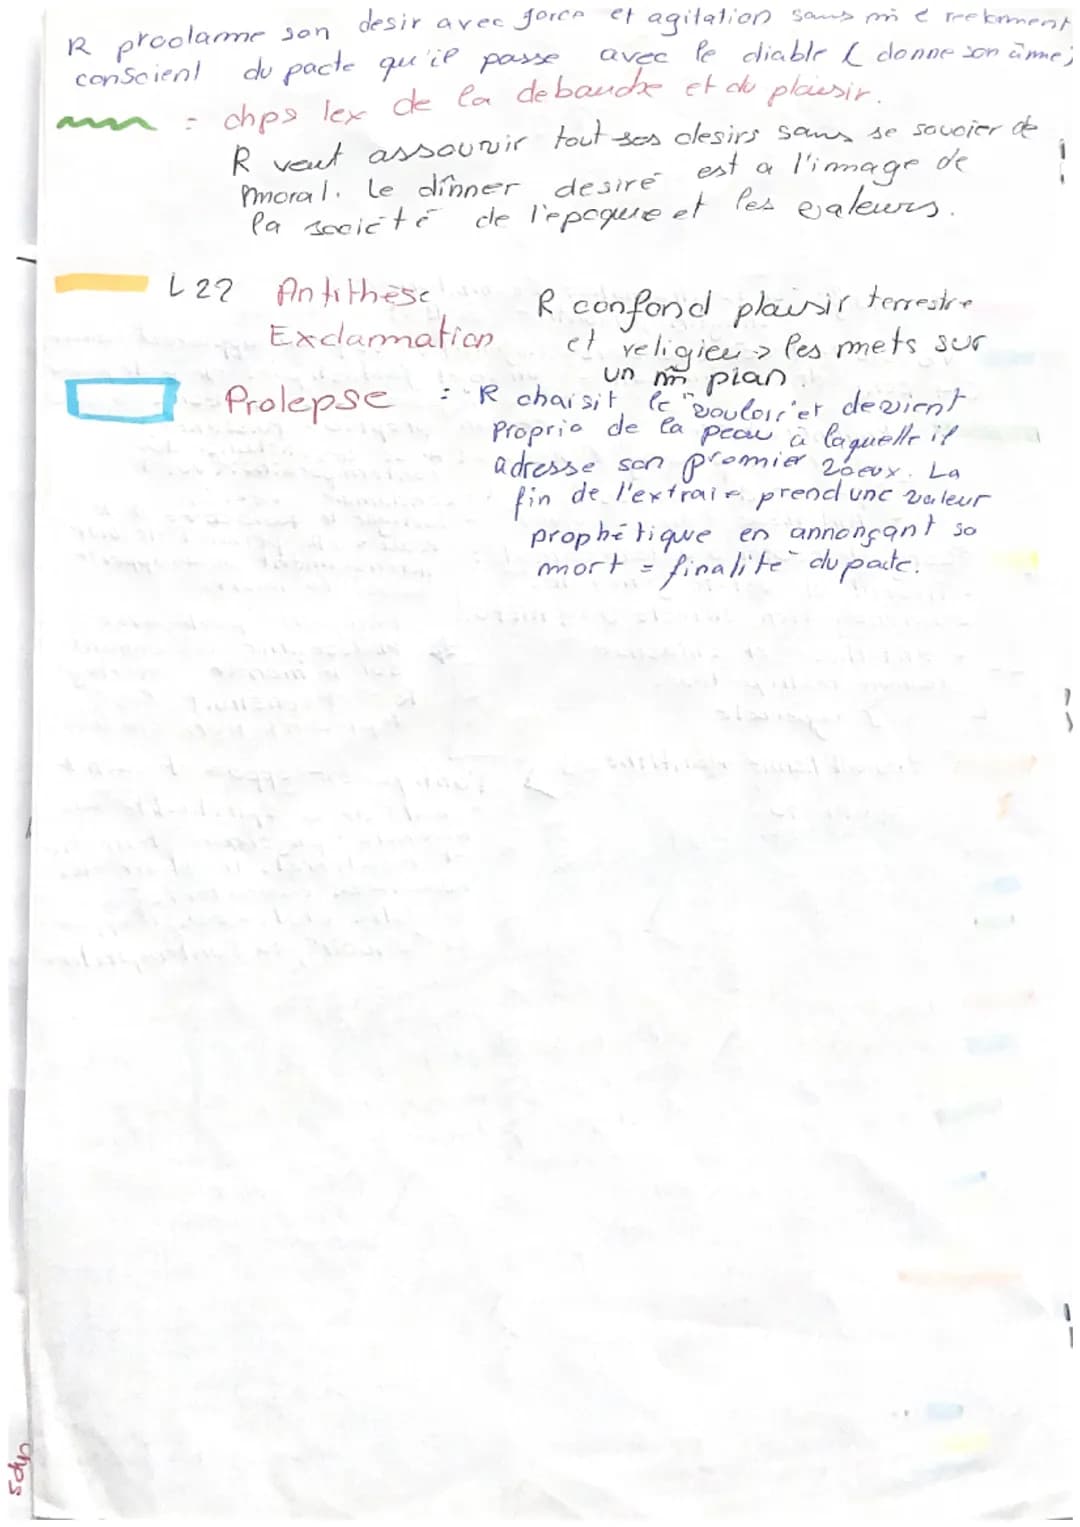 R proclame son desir avec force et agitation sans mm e reelement
conscient du pacte qu'il passe avec le diable ( donne son âme)
= chps lex de la debauche et du plaisir.
R veut assouvir tout ses desirs sans se soucier de
moral. Le dînner desiré est a l'image de
la société de l'epoque et les valeurs.
L 22 Antithèse
Exclamation
R confond plaisir terrestre
et religieu > les mets sur
un mm plan.
Prolepse : R choisit le "vouloir" et devient
proprio de la peau à laquelle il
adresse son premier voeux. La
fin de l'extrait prend une valeur
prophétique en annonçant sa
mort = finalité du pacte.